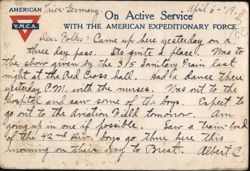 AMERICAN
Y.M.C.A.
Trier Germany. April 6-'19.
On Active Service
WITH THE AMERICAN EXPEDITIONARY FORCE
Dear Folks: Came up here yesterday on a
three day pass. Its quite a place! Was to
the show given by the 315 Sanitary Train last
night at the Red Cross hall. Had a dance there
yesterday P.M. with the nurses. Was out to the
hospital and saw some of the boys. Expect to
go out to the Aviation Field tomorrow. Am
going up in one if possible. Saw a train-load
of the 42nd Div. boys go thru here this
morning on their way to Brest. Albert C.